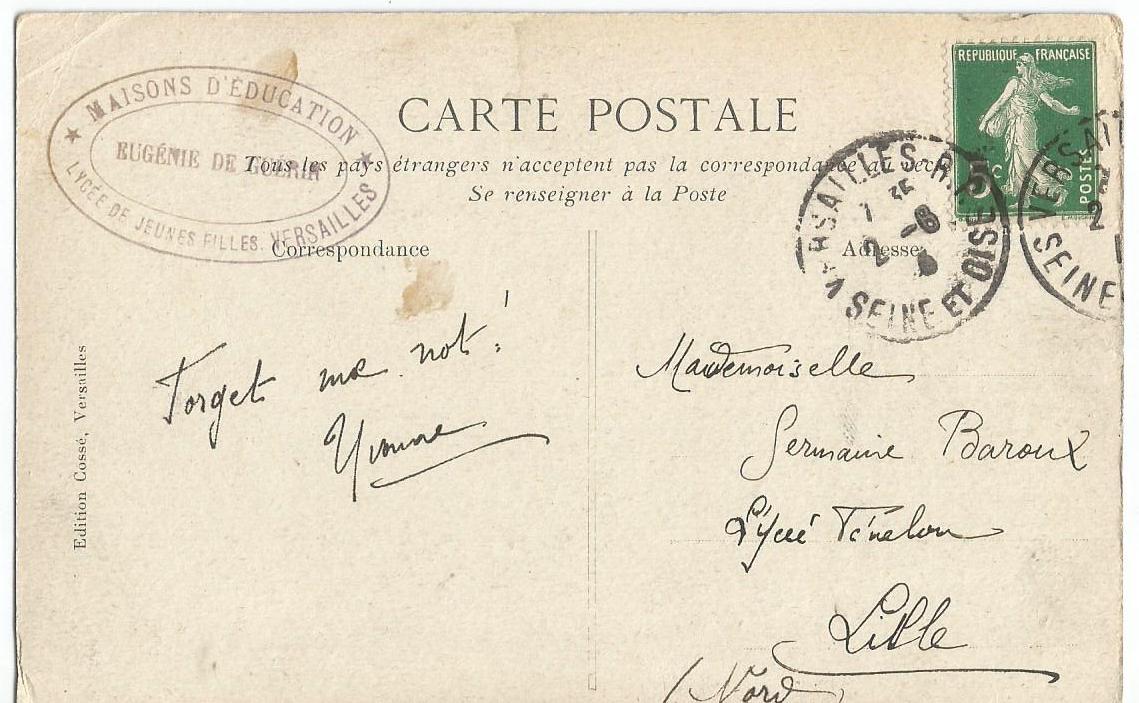 MAISONS D'ÉDUCATION
EUGÉNIE DE GUÉRIN
LYCÉE DE JEUNES FILLES. VERSAILLES
CARTE POSTALE
Tous les pays étrangers n'acceptent pas la correspondance au recto
Se renseigner à la Poste
Correspondance
Adresse
REPUBLIQUE FRANÇAISE
5 c
POSTES
VERSAILLES R.P.
2 -6
SEINE ET OISE
VERSAIL
2
SEINE
Edition Cossé, Versailles
Forget me not!
Yvonne
Mademoiselle
Germaine Baroux
Lycée Fénelon
Lille
(Nord)